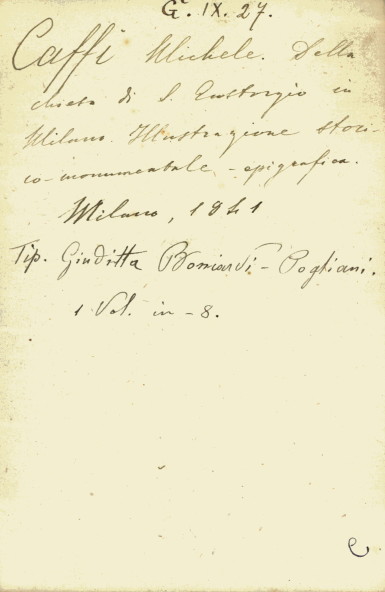 G. IX. 27.
Caffi Michele. Della
chiesa di S. Eustorgio in
Milano. Illustrazione stori-
co-monumentale-epigrafica.
Milano, 1841
Tip. Giuditta Boniardi-Pogliani.
1 Vol. in-8.